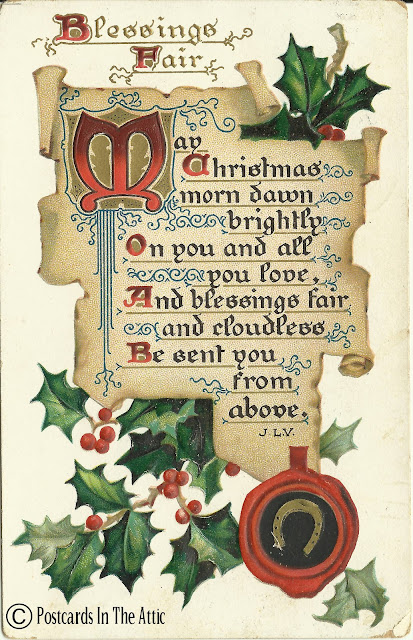 Blessings
Fair
May
Christmas
morn dawn
brightly
On you and all
you love,
And blessings fair
and cloudless
Be sent you
from
above.
J.L.V.
© Postcards In The Attic